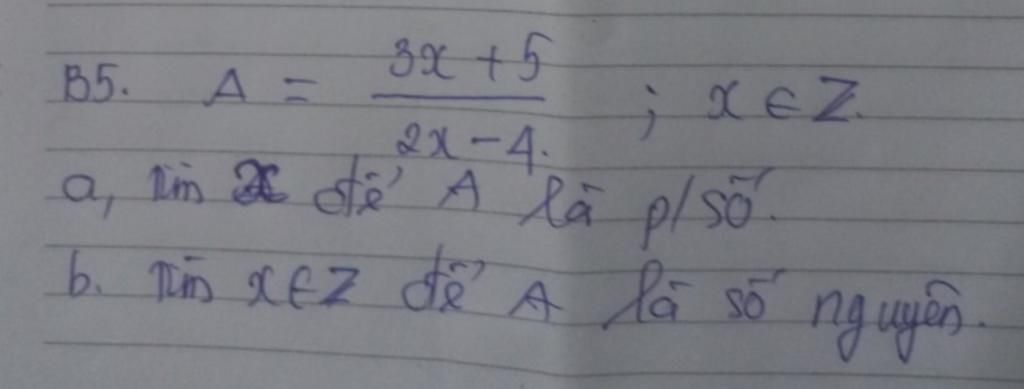 B5. A = (3x + 5)/(2x - 4) ; x ∈ Z.
a, Tìm x để A là p/số.
b. Tìm x ∈ Z để A là số nguyên.